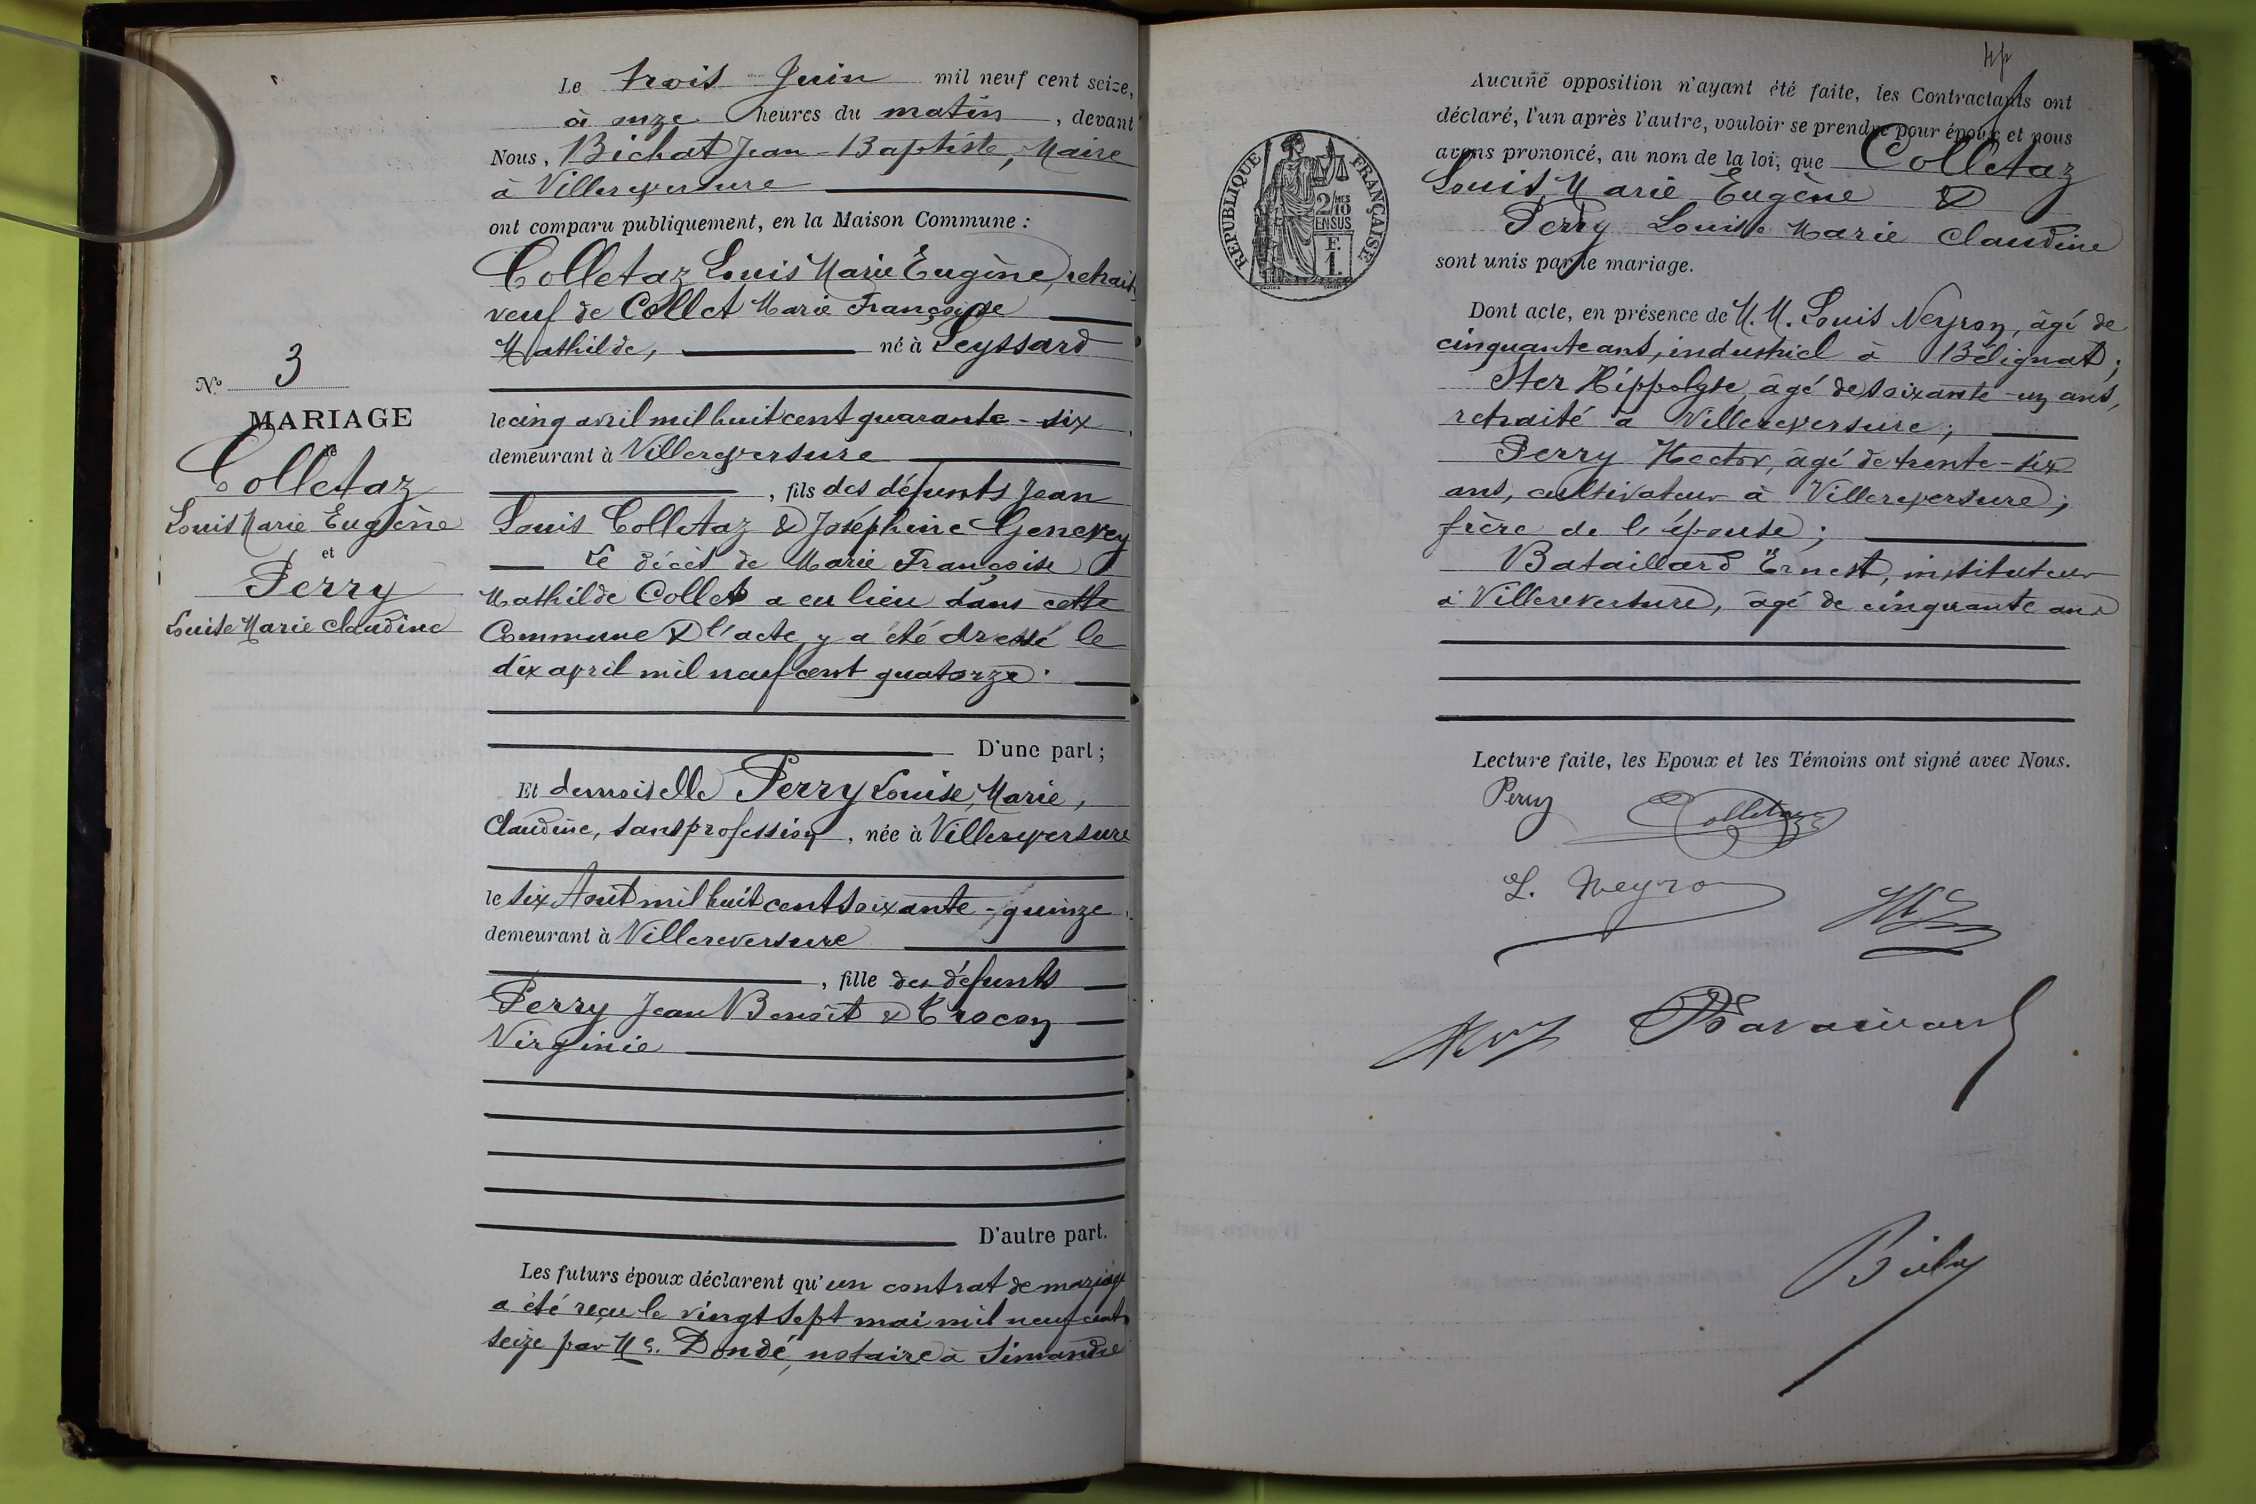 Le trois Juin mil neuf cent seize,
à onze heures du matin, devant
Nous, Bichat Jean-Baptiste, Maire
à Villereversure
ont comparu publiquement, en la Maison Commune :
Colletaz Louis Marie Eugène, retraité
veuf de Collet Marie Françoise
Mathilde, né à Leyssard
le cinq avril mil huit cent quarante-six
demeurant à Villereversure
, fils des défunts Jean
Louis Colletaz & Joséphine Genevey
Le décès de Marie Françoise
Mathilde Collet a eu lieu dans cette
Commune & l'acte y a été dressé le
dix avril mil neuf cent quatorze.
D'une part ;
Et demoiselle Perry Louise, Marie,
Claudine, sans profession, née à Villereversure
le six Août mil huit cent soixante-quinze
demeurant à Villereversure
, fille des défunts
Perry Jean Benoît & Trocon
Virginie
D'autre part.
Les futurs époux déclarent qu'un contrat de mariage
a été reçu le vingt sept mai mil neuf cent
seize par Me. Dondé, notaire à Simandre
No 3
MARIAGE
de
Colletaz
Louis Marie Eugène
et
Perry
Louise Marie Claudine
Aucune opposition n'ayant été faite, les Contractants ont
déclaré, l'un après l'autre, vouloir se prendre pour époux et nous
avons prononcé, au nom de la loi, que Colletaz
Louis Marie Eugène &
Perry Louise Marie Claudine
sont unis par le mariage.
Dont acte, en présence de M. M. Louis Neyron, âgé de
cinquante ans, industriel à Bélignat ;
Ster Hippolyte, âgé de soixante-un ans,
retraité à Villereversure ;
Perry Hector, âgé de trente-six
ans, cultivateur à Villereversure ;
frère de l'épouse ;
Bataillard Ernest, instituteur
à Villereversure, âgé de cinquante ans
Lecture faite, les Epoux et les Témoins ont signé avec Nous.
Perry Colletaz
L. Neyron
REPUBLIQUE FRANÇAISE
2/10 MES
EN SUS
F.
1.